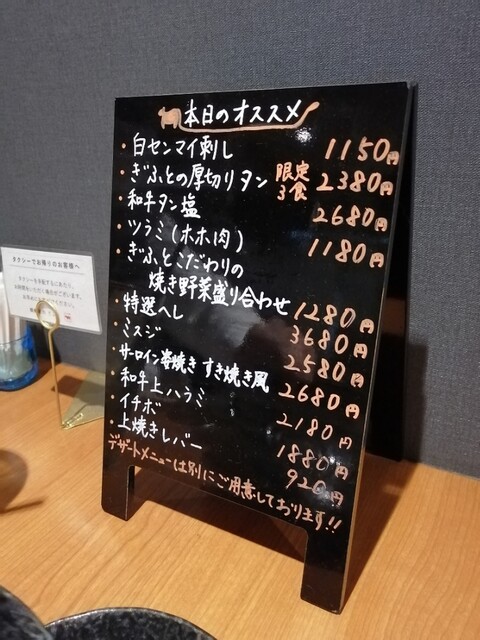 本日のオススメ
・白センマイ刺し 1150円
・ぎふとの厚切りタン 限定3食 2380円
・和牛タン塩 2680円
・ツラミ(ホホ肉) 1180円
・ぎふとこだわりの
焼き野菜盛り合わせ 1280円
・特選ヘレ 3680円
・ミスジ 2580円
・サーロイン炙焼き すき焼き風 2680円
・和牛上ハラミ 2180円
・イチボ 1880円
・上焼きレバー 920円
デザートメニューは別にご用意しております!!
タクシーでお帰りのお客様へ